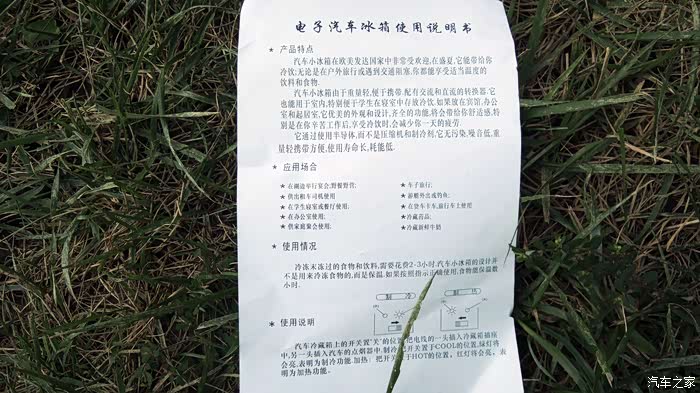 电子汽车冰箱使用说明书
★ 产品特点
汽车小冰箱在欧美发达国家中非常受欢迎,在盛夏,它能带给你
冷饮;无论是在户外旅行或遇到交通阻塞,你都能享受适当温度的
饮料和食物.
汽车小冰箱由于重量轻,便于携带.配有交流和直流的转换器.它
也能用于室内,特别便于学生在寝室中存放冷饮.如果放在宾馆,办公
室和起居室,它优美的外观和设计,齐全的功能,将会带给你舒适感,特
别是在你辛苦工作后,享受冷饮时,会减少你一天的疲劳.
它通过使用半导体,而不是压缩机和制冷剂,它无污染,噪音低,重
量轻携带方便,使用寿命长,耗能低.
★ 应用场合
★ 在湖边举行宴会,野餐野营; ★ 车子旅行;
★ 供出租车司机使用 ★ 游艇外出或钓鱼;
★ 在学生寝室或餐厅使用; ★ 在货车卡车,旅行车上使用
★ 在办公室使用; ★ 冷藏药品;
★ 供家庭聚会使用; ★ 冷藏新鲜牛奶
★ 使用情况
冷冻未冻过的食物和饮料,需要花费2-3小时.汽车小冰箱的设计并
不是用来冷冻食物的,而是保温.如果按照指示正确使用,食物能保温数
小时.
★ 使用说明
汽车冷藏箱上的开关置"关"的位置,把电线的一头插入冷藏箱插座
中,另一头插入汽车的点烟器中.制冷:把开关置于COOL的位置,绿灯将
会亮,表明为制冷功能.加热:把开关置于HOT的位置,红灯将会亮,表
明为加热功能.
汽车之家